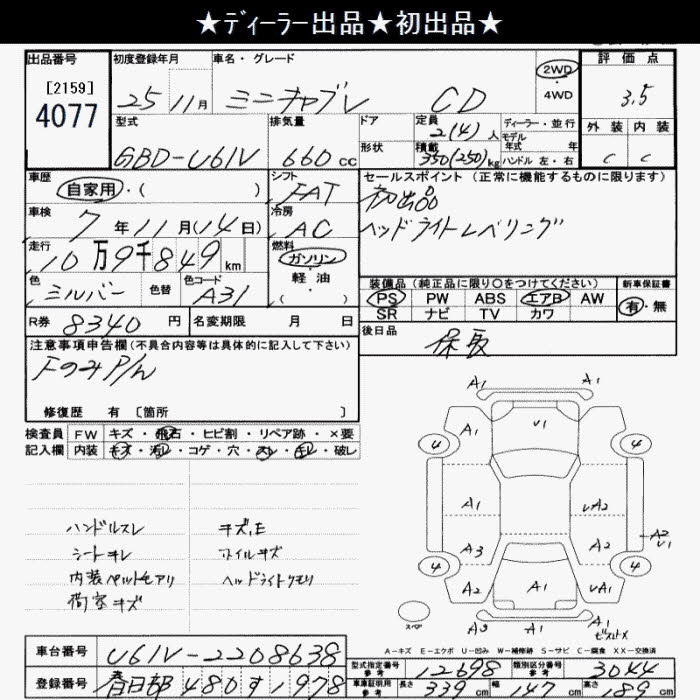 ★ディーラー出品★初出品★
出品番号
[2159]
4077
初度登録年月
25 11月
車名・グレード
ミニキャブV CD
2WD
・
4WD
評価点
3.5
外装 内装
C C
型式
GBD-U61V
排気量
660cc
ドア
形状
定員
2(4)人
積載
350(250)kg
ディーラー・並行
モデル
年式 年
ハンドル 左・右
車歴
自家用・( )
シフト
FAT
車検
7年11月(14日)
冷房
AC
走行
10万9千849km
燃料
ガソリン
・
軽油
( )
色
シルバー
色替
色コード
A31
R券 8340円
名変期限 月 日
セールスポイント(正常に機能するものに限ります)
初出品
ヘッドライトレベリング
装備品(純正品に限り○をつけてください)
PS PW ABS エアB AW
SR ナビ TV カワ
新車保証書
有・無
後日品
保取
注意事項申告欄(不具合内容等は具体的に記入して下さい)
FのみP/W
修復歴 有〔箇所 〕
検査員 FW キズ・飛石・ヒビ割・リペア跡・×要
記入欄 内装 キズ・汚レ・コゲ・穴・スレ・キレ・破レ
ハンドルスレ
シートキレ
内装ペットモアリ
荷室キズ
キズ、E
ホイルキズ
ヘッドライトクモリ
A1 A1
A1 V1
4 4
A1 UA2
A3 A2 A2 U1
4 4
A2 A1 UA1
スペア
A3 A1 A1
A-キズ E-エクボ U-凹み W-補修跡 S-サビ C-腐食 XX-交換済
車台番号 U61V-2208638
登録番号 春日部480す1978
型式指定番号 参考 12698
類別区分番号 参考 3044
車庫証明用 参考 長さ339cm 幅147cm 高さ189cm